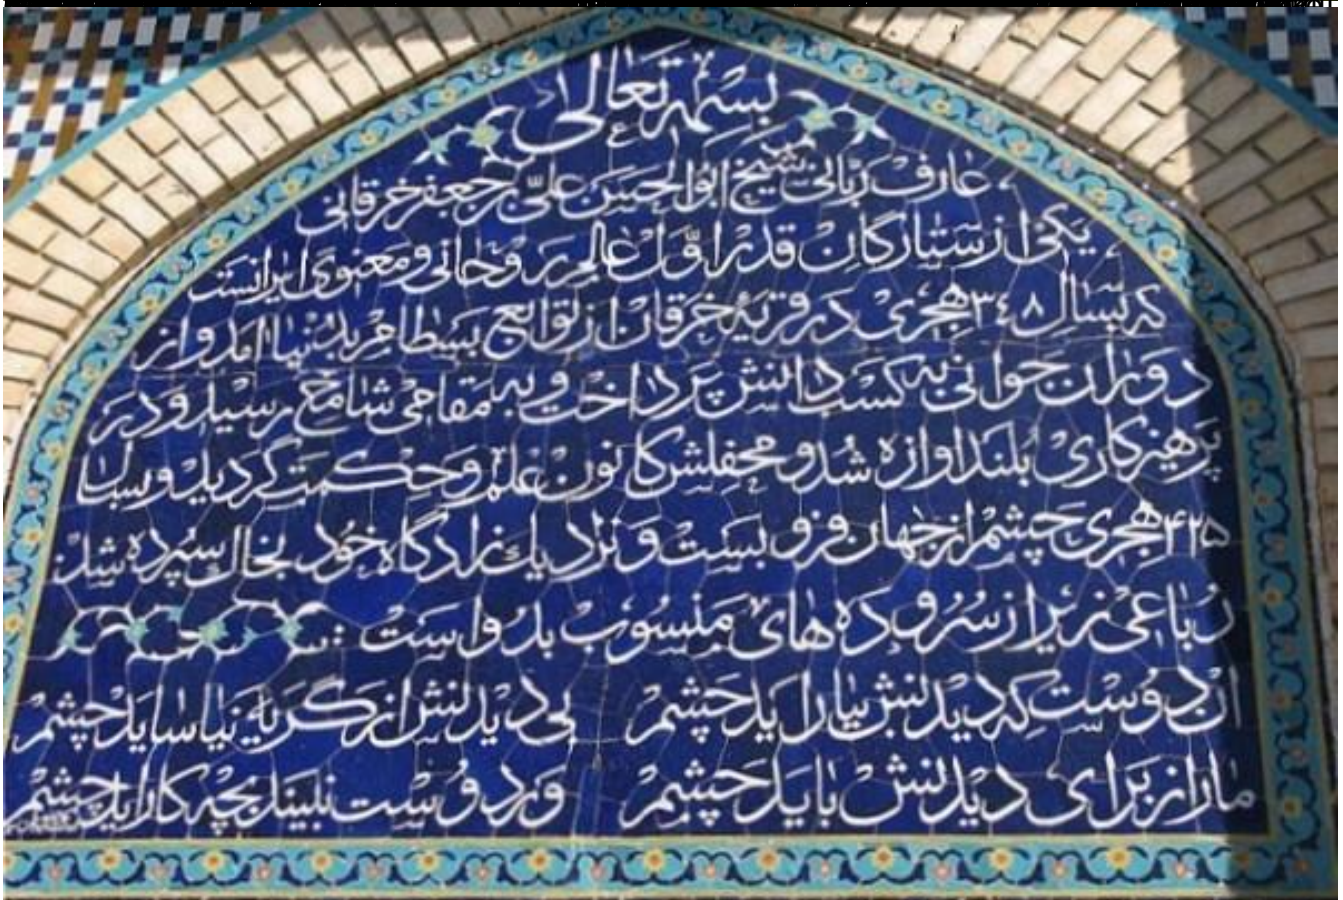 بسمه تعالی
عارف ربانی شیخ ابوالحسن علی بن جعفر خرقانی
یکی از ستارگان قدر اول عالم روحانی و معنوی ایرانست
که بسال ۳٤۸ هجری در قریه خرقان از توابع بسطام بدنیا آمد و از
دوران جوانی به کسب دانش پرداخت و به مقامی شامخ رسید و در
پرهیزکاری بلند آوازه شد و محفلش کانون علم و حکمت گردید و بسال
۴۲۵ هجری چشم از جهان فرو بست و نزدیک زادگاه خود بخاک سپرده شد
رباعی زیر از سروده های منسوب بدو است :
آن دوست که دیدنش بیاراید چشم بی دیدنش از گریه نیاساید چشم
ما را ز برای دیدنش باید چشم ور دوست نبیند بچه کار آید چشم